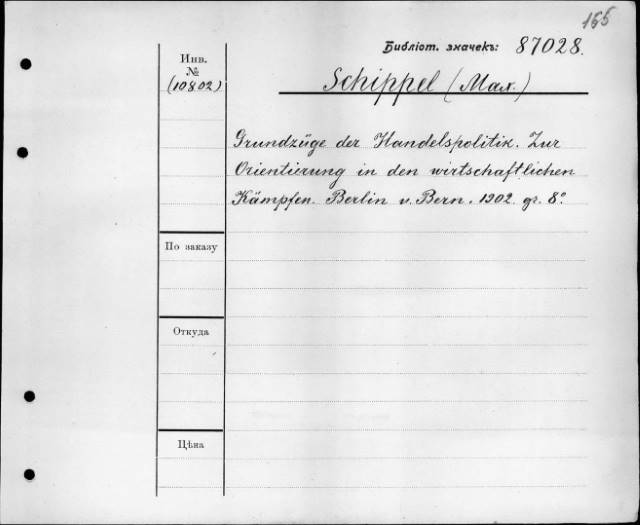 155
Библіот. значекъ: 87028.
Инв.
№
(10802)
Schippel (Max.)
Grundzüge der Handelspolitik. Zur
Orientierung in den wirtschaftlichen
Kämpfen. Berlin u. Bern. 1902. gr. 8º
По заказу
Откуда
Цѣна